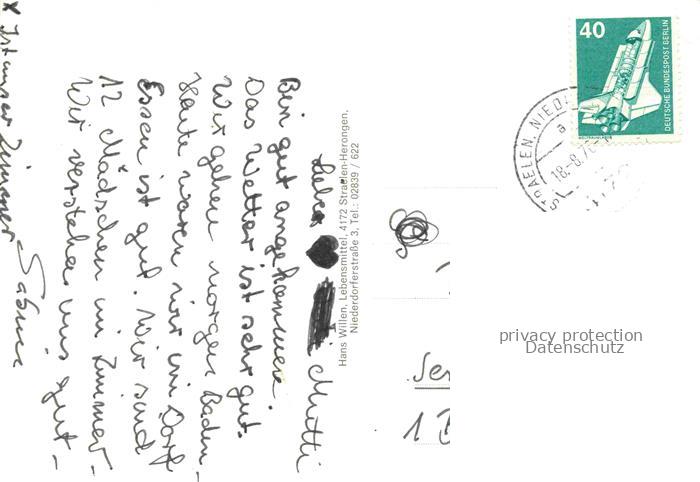 Liebe Mutti
Bin gut angekommen.
Das Wetter ist sehr gut.
Wir gehen morgen Baden.
Heute waren wir im Dorf
Essen ist gut. Wir sind
12 Mädschen im Zimmer.
Wir verstehen uns gut.
Sabine
x Ist unser Zimmer
Hans Willen, Lebensmittel, 4172 Straelen-Herongen,
Niederdorferstraße 3, Tel.: 02839 / 622
40
DEUTSCHE BUNDESPOST BERLIN
STRAELEN, NIED
a
18.-8.7
privacy protection
Datenschutz
Sen
1 B